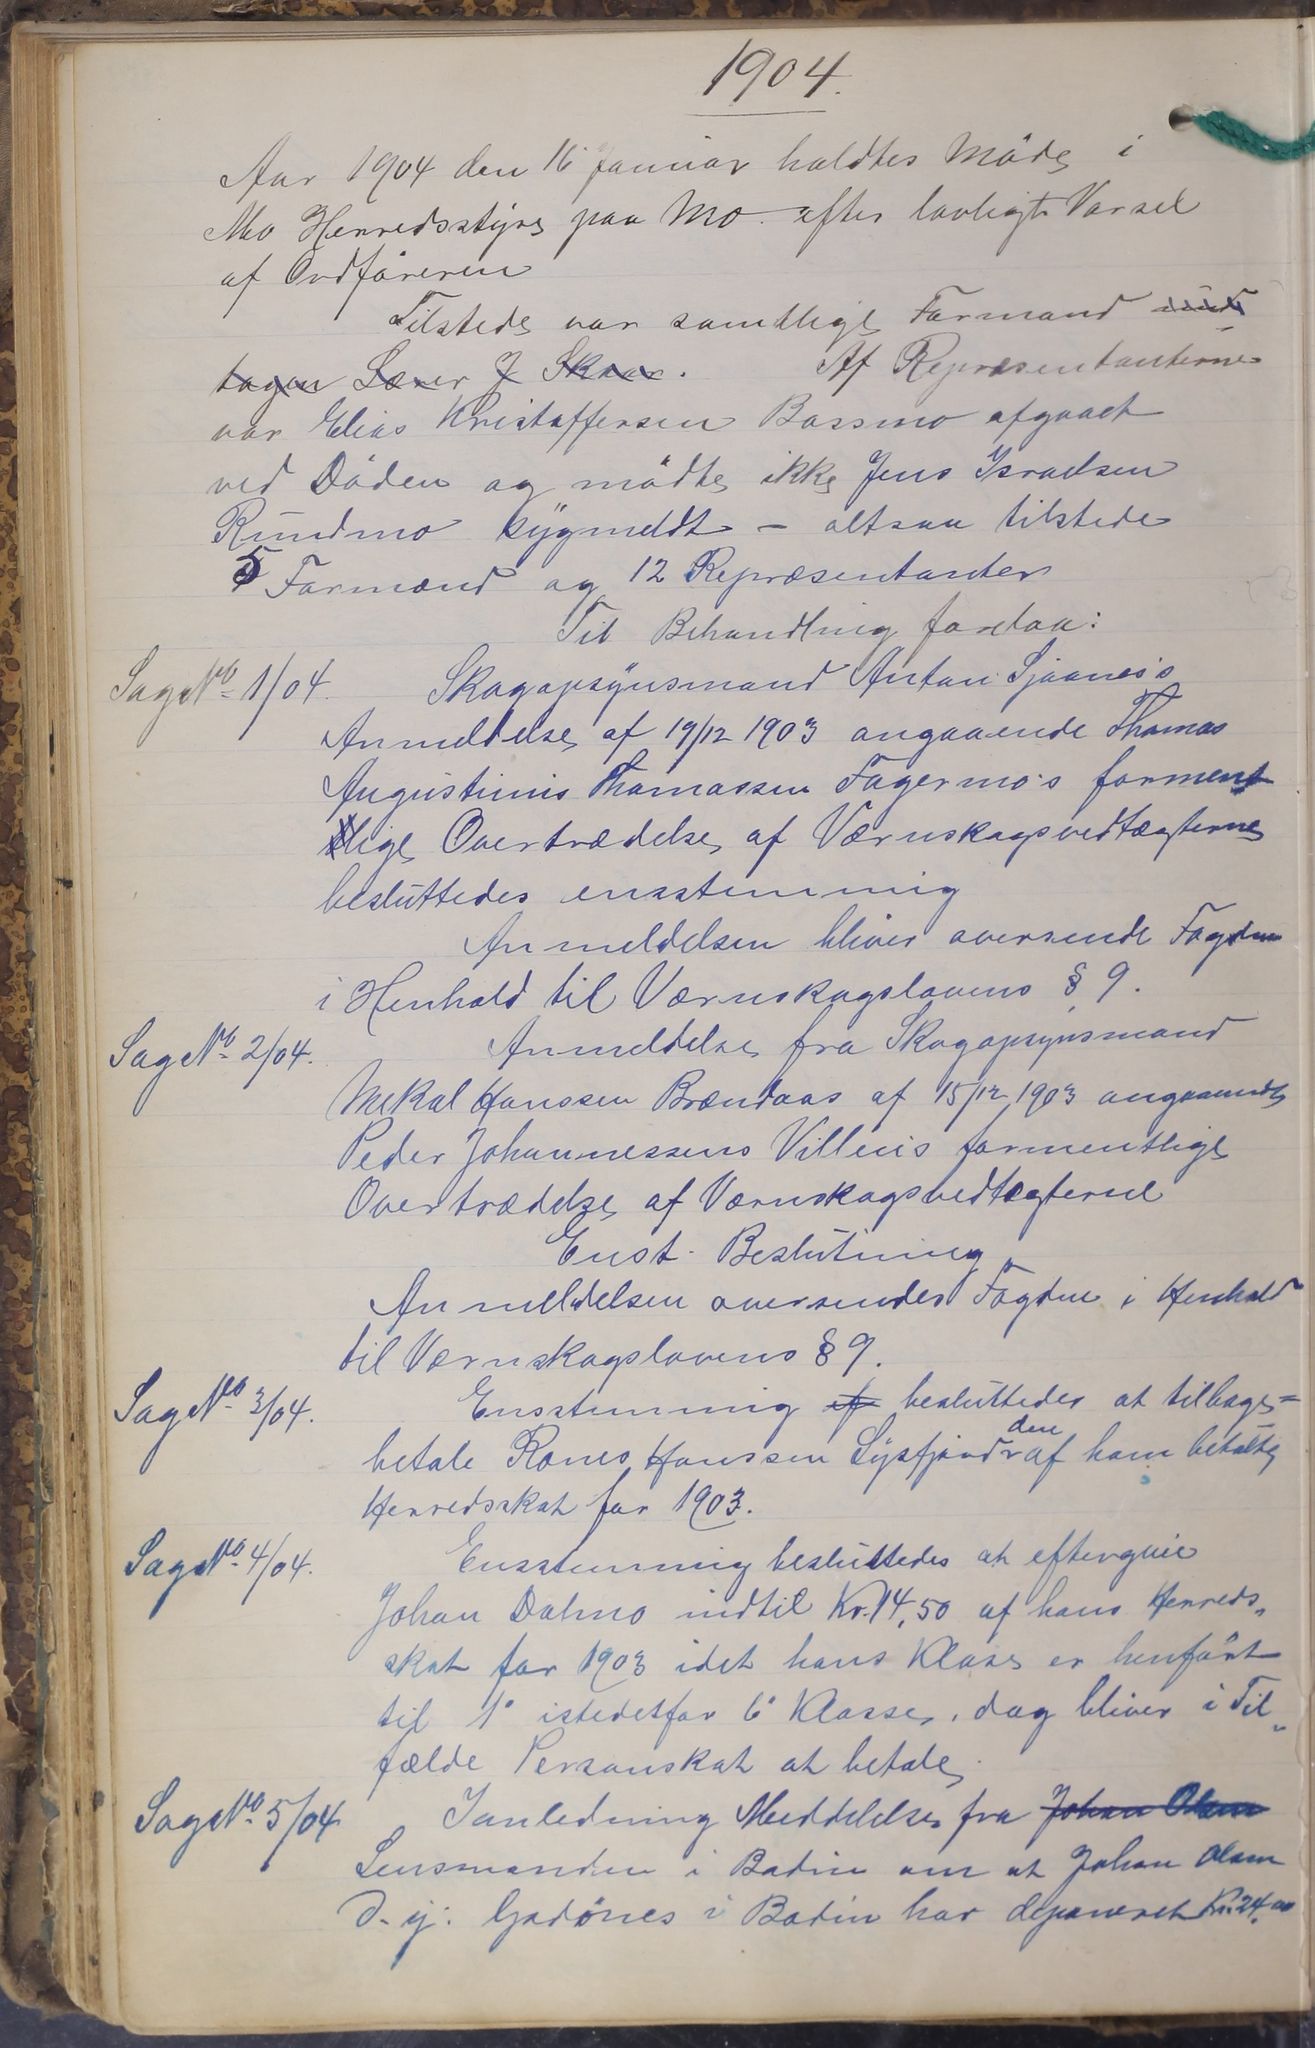 1904.
Aar 1904 den 16 Januar holdtes Möde i
Mo Herredsstyre paa Mo efter lovligt Varsel
af Ordföreren
Tilstede var samtlige Formænd und
tagen Lærer J Skaar. Af Repræsentanterne
var Elias Kristoffersen Bossmo afgaaet
ved Döden og mödte ikke Jens Israelsen
Rundmo sygmeldt - altsaa tilstede
5 Formænd og 12 Repræsentanter
Til Behandling forelaa:
Sag No 1/04. Skogopsynsmand Anton Sjaanes's
Anmeldelse af 19/12 1903 angaaende Thomas
Augustinus Thomassen Fagermo's forment
lige Overtrædelse af Værnskogsvedtægterne
besluttedes enstemmig
Anmeldelsen bliver oversende Fogden
i Henhold til Værnskogslovens § 9.
Sag No 2/04. Anmeldelse fra Skogopsynsmand
Mikal Hanssen Brændaas af 15/12 1903 angaaende
Peder Johannessens Villeus formentlige
Overtrædelse af Værnskogsvedtægterne
Enst. Beslutning
Anmeldelsen oversendes Fogden i Henhold
til Værnskogslovens § 9.
Sag No 3/04. Ensstemmig af besluttedes at tilbage=
betale Rones Hanssen Sysfjord den af ham betalte
Herredsskat for 1903.
Sag No 4/04. Ensstemmig besluttedes at eftergive
Johan Dalmo indtil Kr. 14,50 af hans Herreds„
skat for 1903 idet hans Klasse er henfört
til 1° istedetfor 6° Klasse, dog bliver i Til„
fælde Personskat at betale.
Sag No 5/04 I anledning Meddelelse fra Johan Olsen
Lensmanden i Bodin om at Johan Olsen
d. y. Godönes i Bodin har deponeret Kr. 24,00